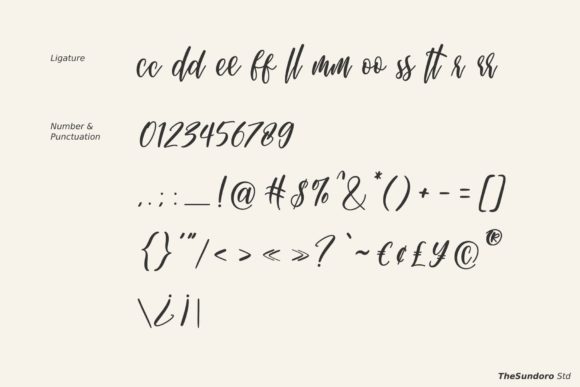 Ligature
cc dd ee ff ll mm oo ss tt r rr
Number &
Punctuation
0123456789
, . ; : _ ! @ # $ % ^ & * ( ) + - = [ ]
{ } ' " / < > « » ? ` ~ € ¢ £ ¥ © ®
\ ¿ ¡ |
TheSundoro Std